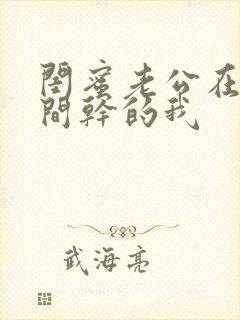 閨蜜老公在
間幹的我
武海亮